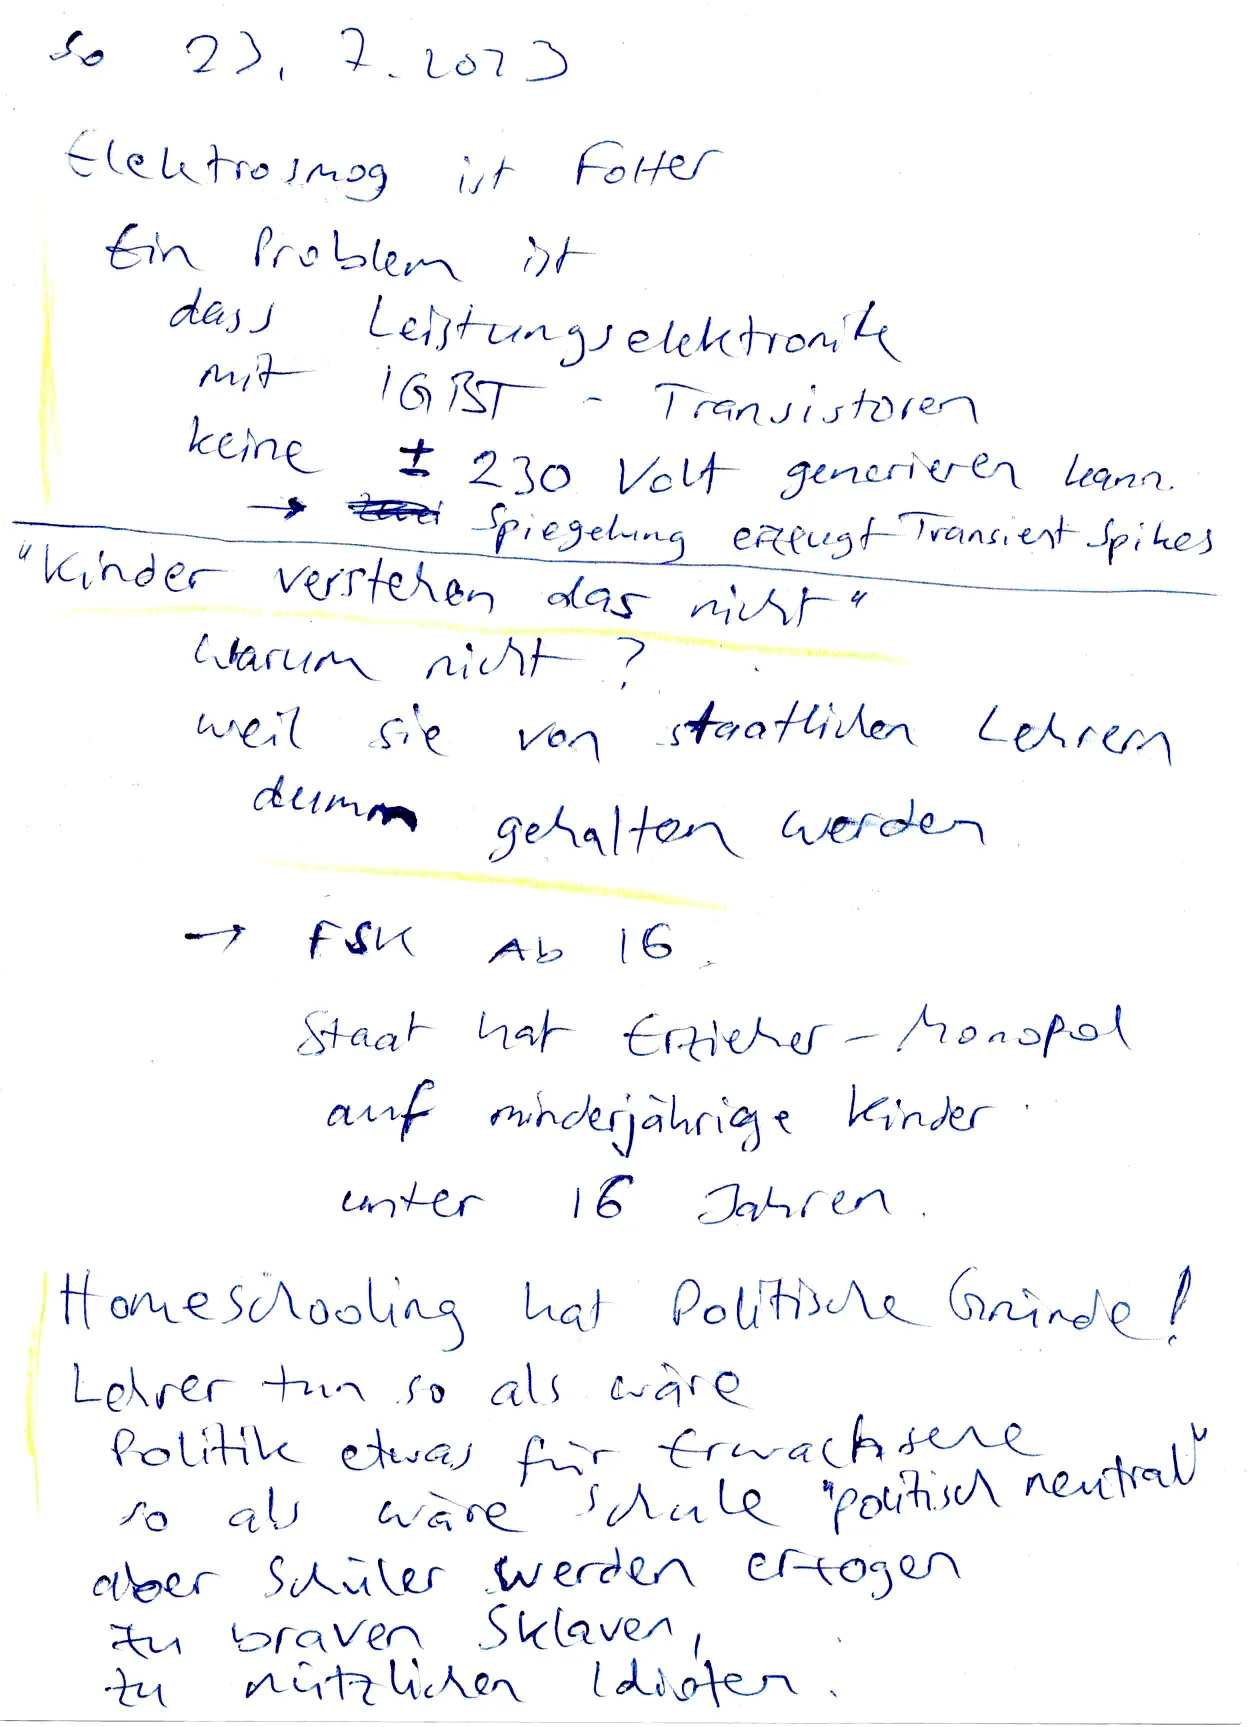 So 23. 7. 2023
Elektrosmog ist Folter
Ein Problem ist
dass Leistungselektronik
mit IGBT - Transistoren
keine ± 230 Volt generieren kann.
→ Spiegelung erzeugt Transient Spikes
"Kinder verstehen das nicht"
Warum nicht?
weil sie von staatlichen Lehrern
dumm gehalten werden
→ FSK Ab 16
Staat hat Erzieher - Monopol
auf minderjährige Kinder
unter 16 Jahren.
Homeschooling hat Politische Gründe!
Lehrer tun so als wäre
Politik etwas für Erwachsene
so als wäre Schule "politisch neutral"
aber Schüler werden erzogen
zu braven Sklaven,
zu nützlichen Idioten.